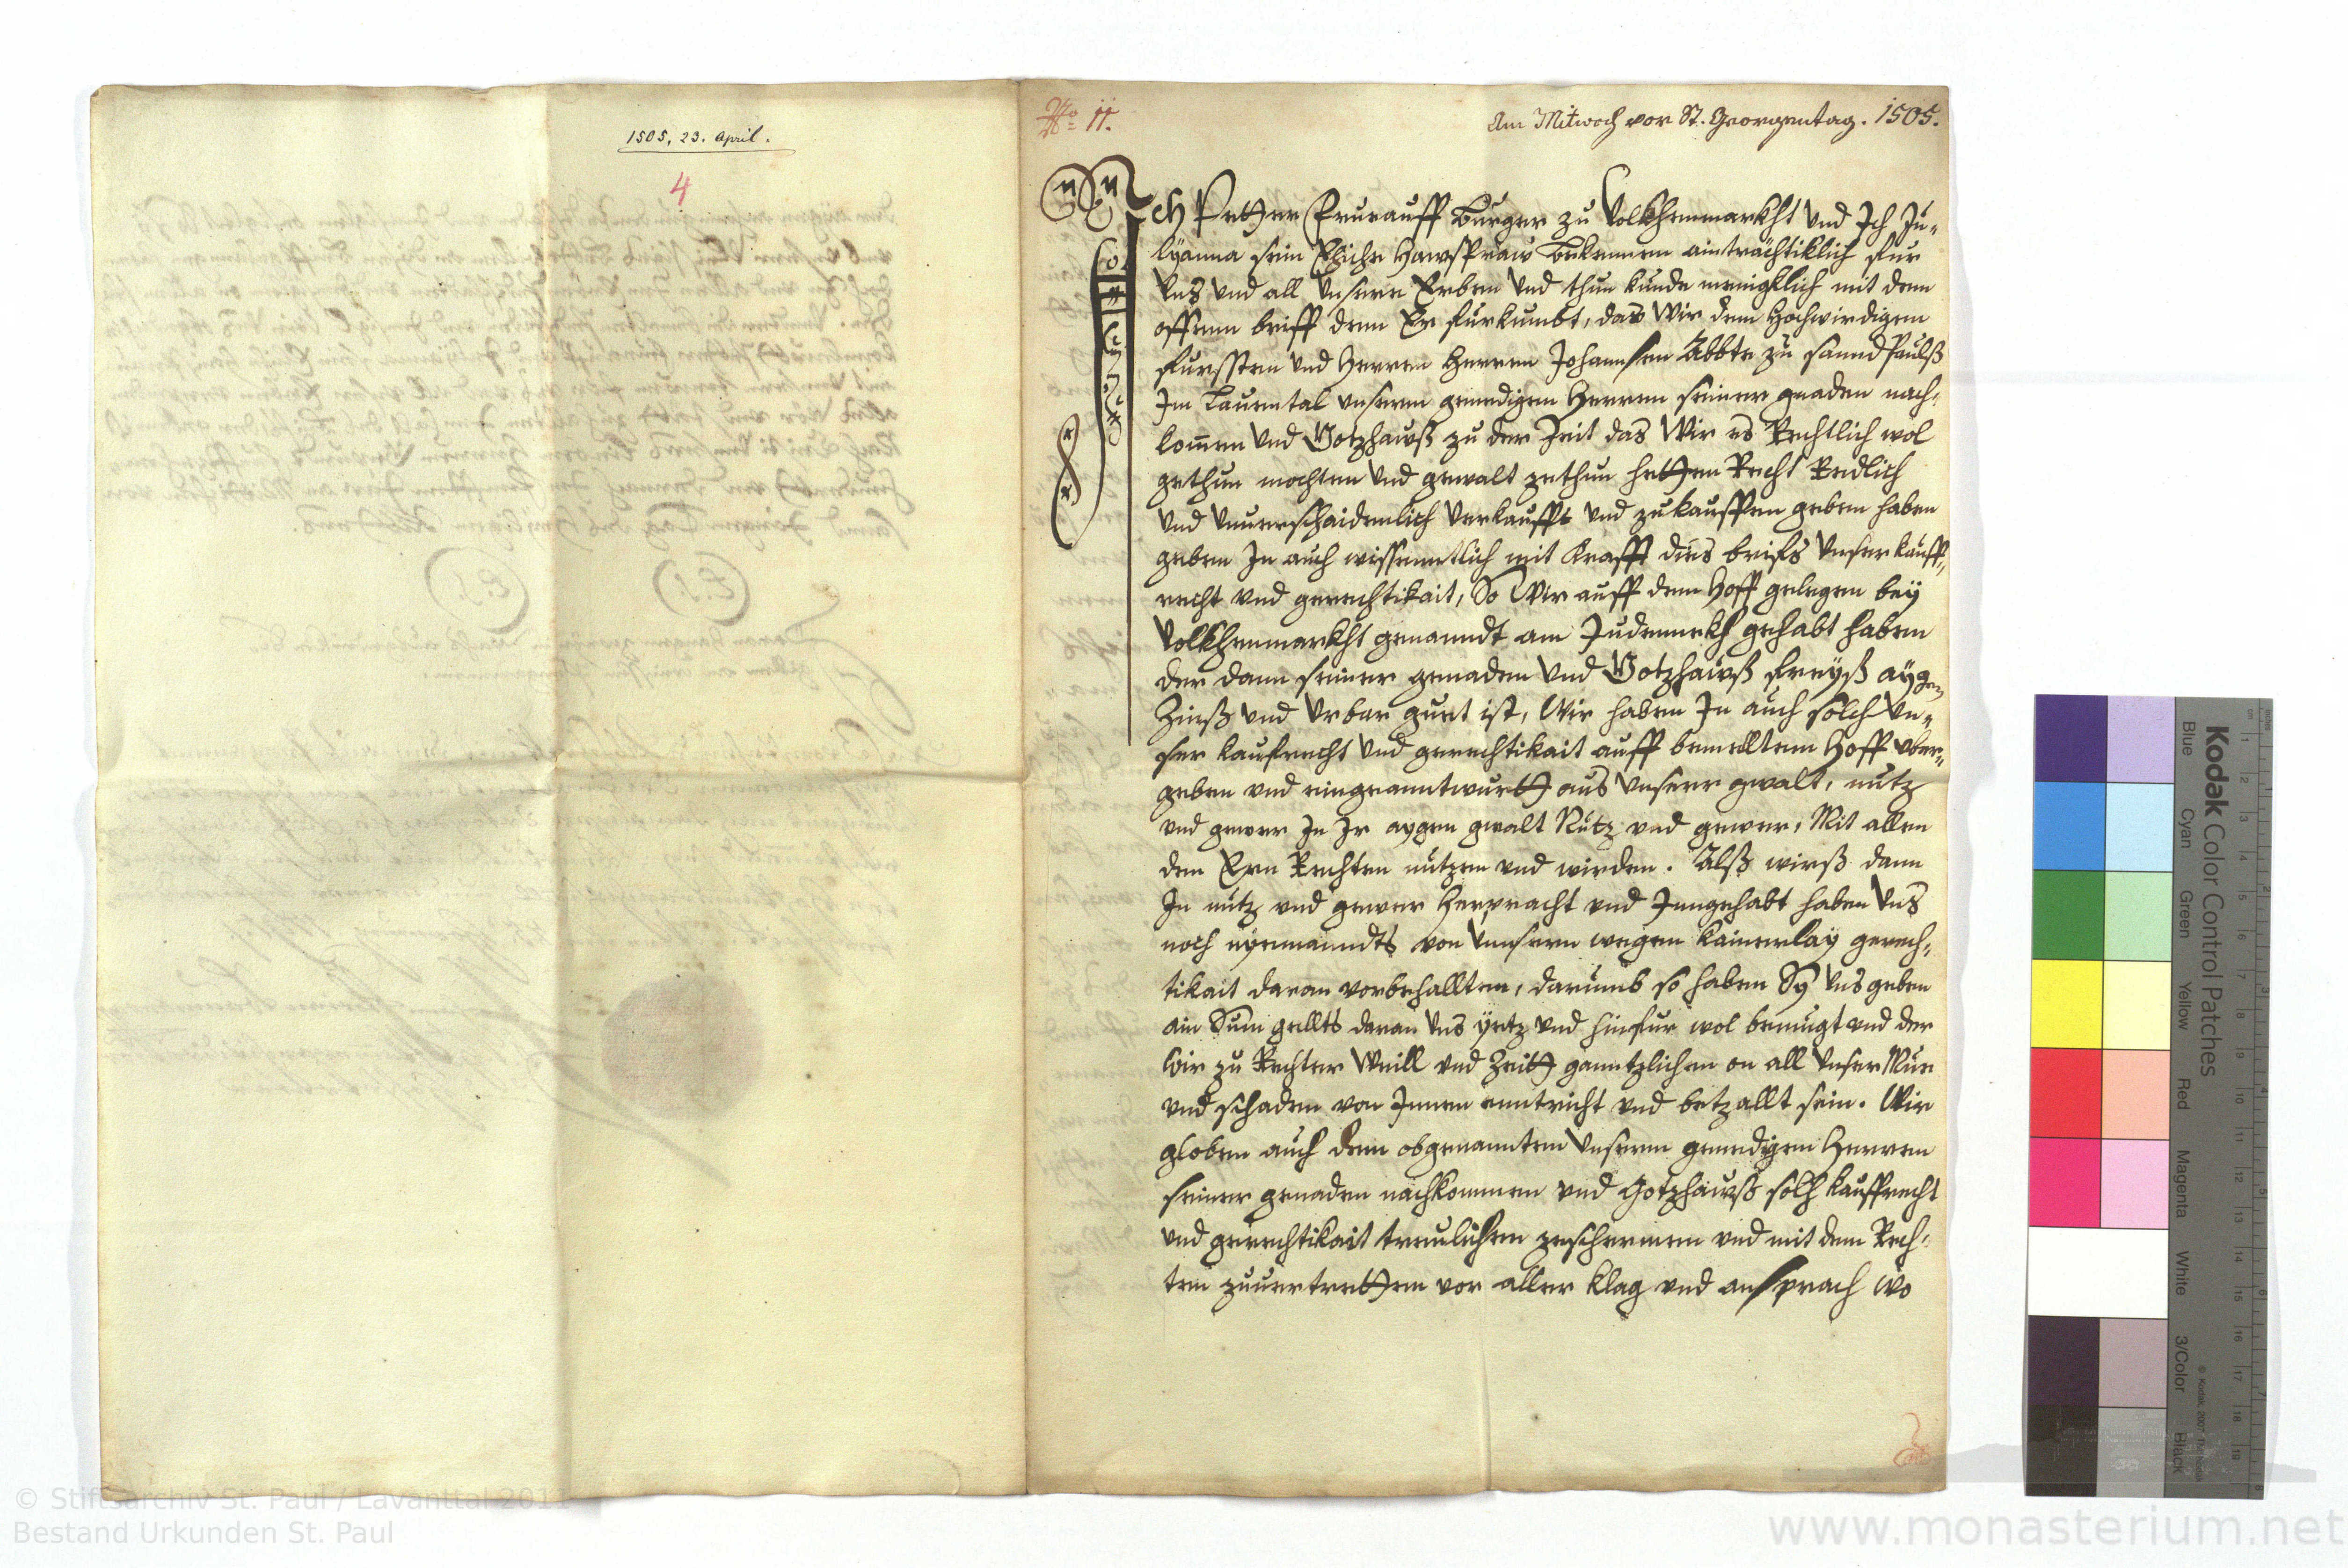 1505, 23. April.
4
No 11.
Am Mitwoch vor St. Georgentag. 1505.
Ich Petter Prurauff Burger zu Volkhenmarkht Vnd Ich Ju-
lÿanna sein Eliche Hawsfraw Bekennen ainträchtiklich fur
Vns Vnd all Vnsere Erben Vnd thun kunde menigklich mit dem
offenn brieff dem Er fürkumbt, das Wir dem Hochwirdigen
fürssten Vnd Herren Herren Johannsen Abbte zu sannd Paulß
Im Lauental vnserm genedigen Herren seiner gnaden nach-
komen Vnd Gotzhawß zu der Zeit das Wir es Rechtlich wol
gethun mochten Vnd gewalt zethun hetten Recht Redlich
Vnd Vnuerschaidenlich Verkaufft Vnd zukauffen geben haben
geben In auch wissenntlich mit Krafft dits briefs Vnser kauff-
recht vnd gerechtikait, So Wir auff dem Hoff gelegen beÿ
Volkhenmarkht genanndt am Judennekh gehabt haben
der dann seiner genaden Vnd Gotzhawß freyß aÿgen
Zinß Vnd Vrbar guet ist, Wir haben In auch solch Vn-
ser kaufrecht Vnd gerechtikait auff bemelltem Hoff vber-
geben vnd eingeanntwurtt aus Vnserr gwalt, nutz
vnd gewer In Ir aygen gwalt Nutz vnd gewer, Mit allen
den Ern Rechten nutzen vnd wirden. Alß wirß dann
In nutz vnd gewer Herpracht vnd Inngehabt haben Vns
noch nyemanndts von Vnnsern wegen kainerlay gerech-
tikait daran vorbehallten, darumb so haben Sy Vns geben
ain Sum gellts daran Vns ÿetz Vnd hinfur wol benugt vnd der
wir zu Rechter Weill vnd Zeitt ganntzlichen on all Vnser Mue
vnd schaden von Innen enntricht vnd betzallt sein. Wir
globen auch dem obgenannten Vnserm genedigen Herren
seiner genaden nachkommen vnd Gotzhawß solh kauffrecht
vnd gerechtikait treulichen zeschermen vnd mit dem Rech-
ten zuuertretten vor aller klag vnd ansprach wo
Kodak Color Control Patches
Blue Cyan Green Yellow Red Magenta White 3/Color Black
© Stiftsarchiv St. Paul / Lavanttal 2011
Bestand Urkunden St. Paul
www.monasterium.net